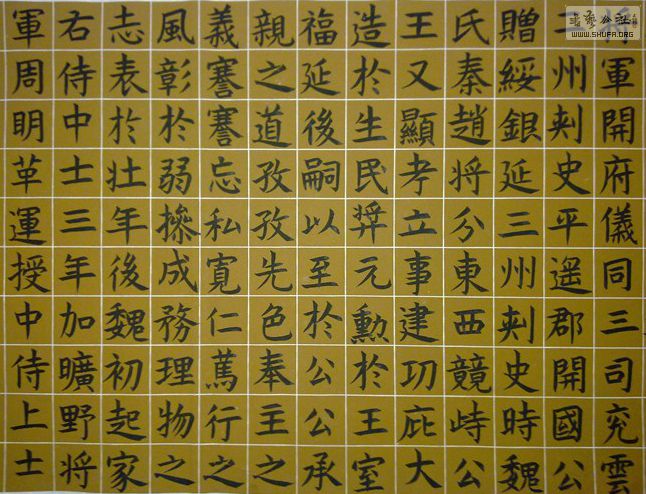 軍開府儀同三司兖雲
州刾史平遥郡開國公
贈綏銀延三州刾史時魏
氏秦趙將分東西競峙公
王又顯孝立事建功庇大
造於生民羿元勳於王室
福延後嗣以至於公公承
親之道孜孜先色奉主之
義謇謇忘私寛仁篤行之
風彰於弱操成務理物之
志表於壯年後魏初起家
右侍中士三年加曠野將
軍周明革運授中侍上士
WWW.SHUFA.ORG